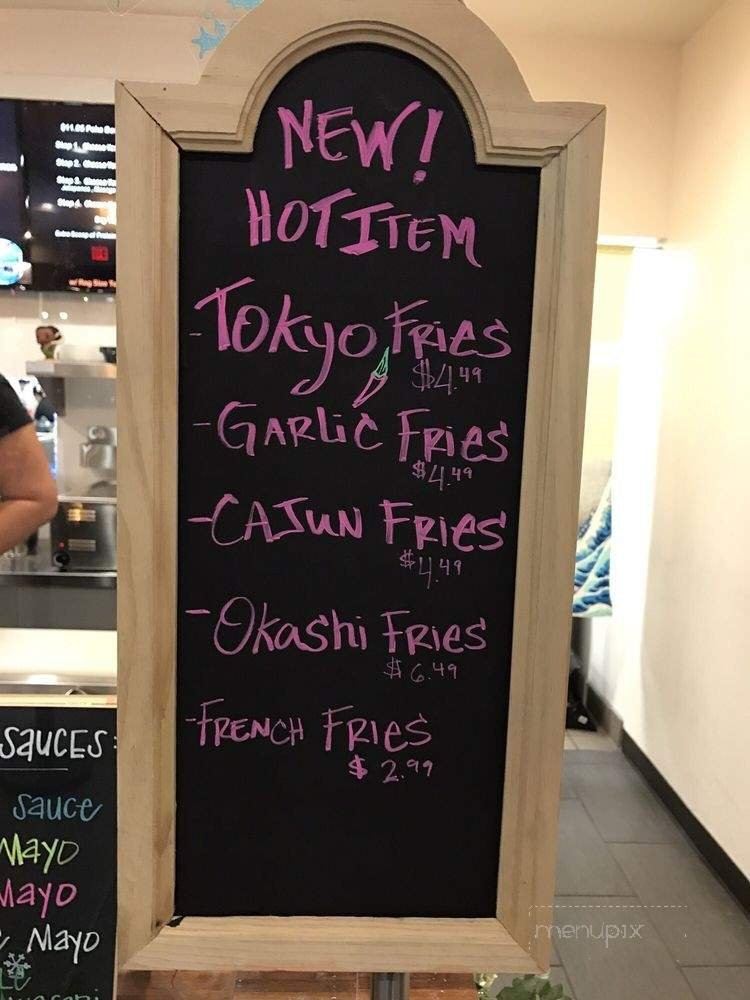 NEW!
HOT ITEM
-Tokyo Fries
$4.49
-GARLiC FRies
$4.49
-CAJUN FRies
$4.49
-Okashi FRies
$6.49
-FRENCH FRies
$2.99
SAUCES:
Sauce
Mayo
Mayo
Mayo
$11.05 Poke
Step 1.
Step 2.
Step 3.
Step 4.
menupix